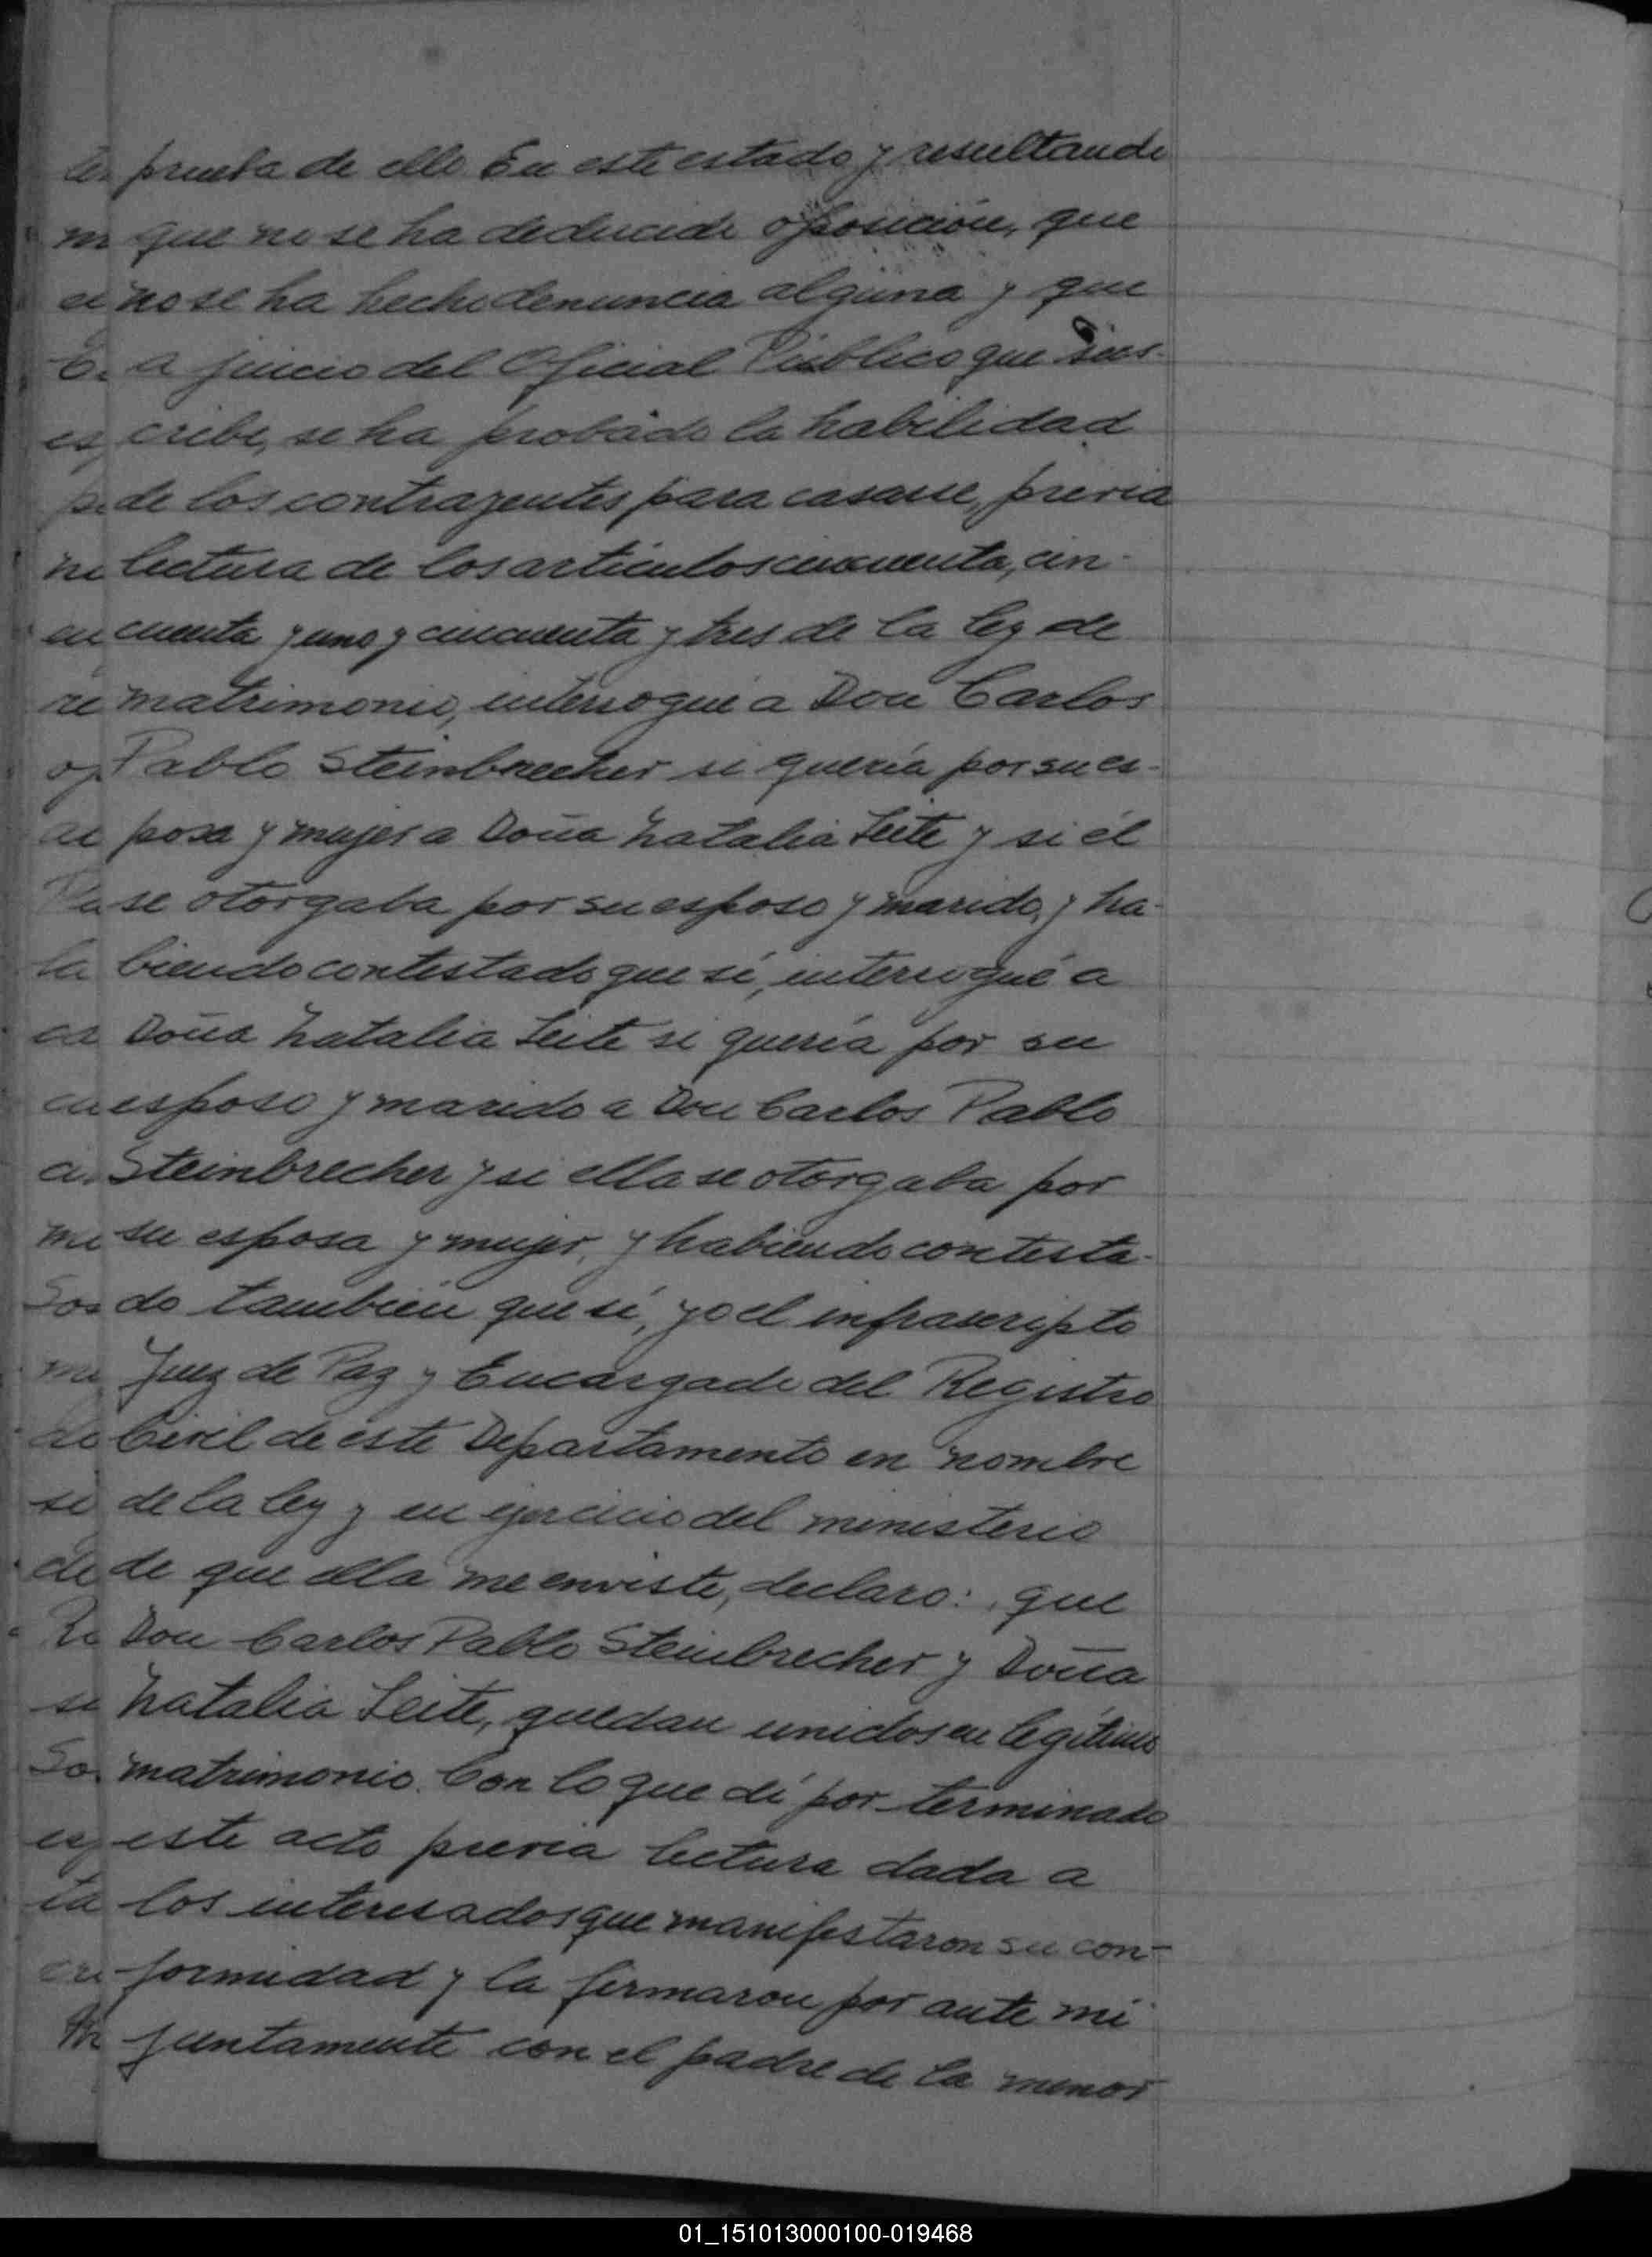 prueba de ello. En este estado y resultando
que no se ha deducido oposición, que
no se ha hecho denuncia alguna y que
a juicio del Oficial Público que sus-
cribe, se ha probado la habilidad
de los contrayentes para casarse, previa
lectura de los artículos cincuenta, cin-
cuenta y uno y cincuenta y tres de la ley de
matrimonio, interrogué a Don Carlos
Pablo Steinbrecher si quería por su es-
posa y mujer a Doña Natalia Leite y si él
se otorgaba por su esposo y marido, y ha-
biendo contestado que sí, interrogué a
Doña Natalia Leite si quería por su
esposo y marido a Don Carlos Pablo
Steinbrecher y si ella se otorgaba por
su esposa y mujer, y habiendo contesta-
do también que sí, yo el infrascripto
Juez de Paz y Encargado del Registro
Civil de este Departamento en nombre
de la ley y en ejercicio del ministerio
de que ella me enviste, declaro: que
Don Carlos Pablo Steinbrecher y Doña
Natalia Leite, quedan unidos en legítimo
matrimonio. Con lo que dí por terminado
este acto previa lectura dada a
los interesados que manifestaron su con-
formidad y la firmaron por ante mí
juntamente con el padre de la menor
01_151013000100-019468